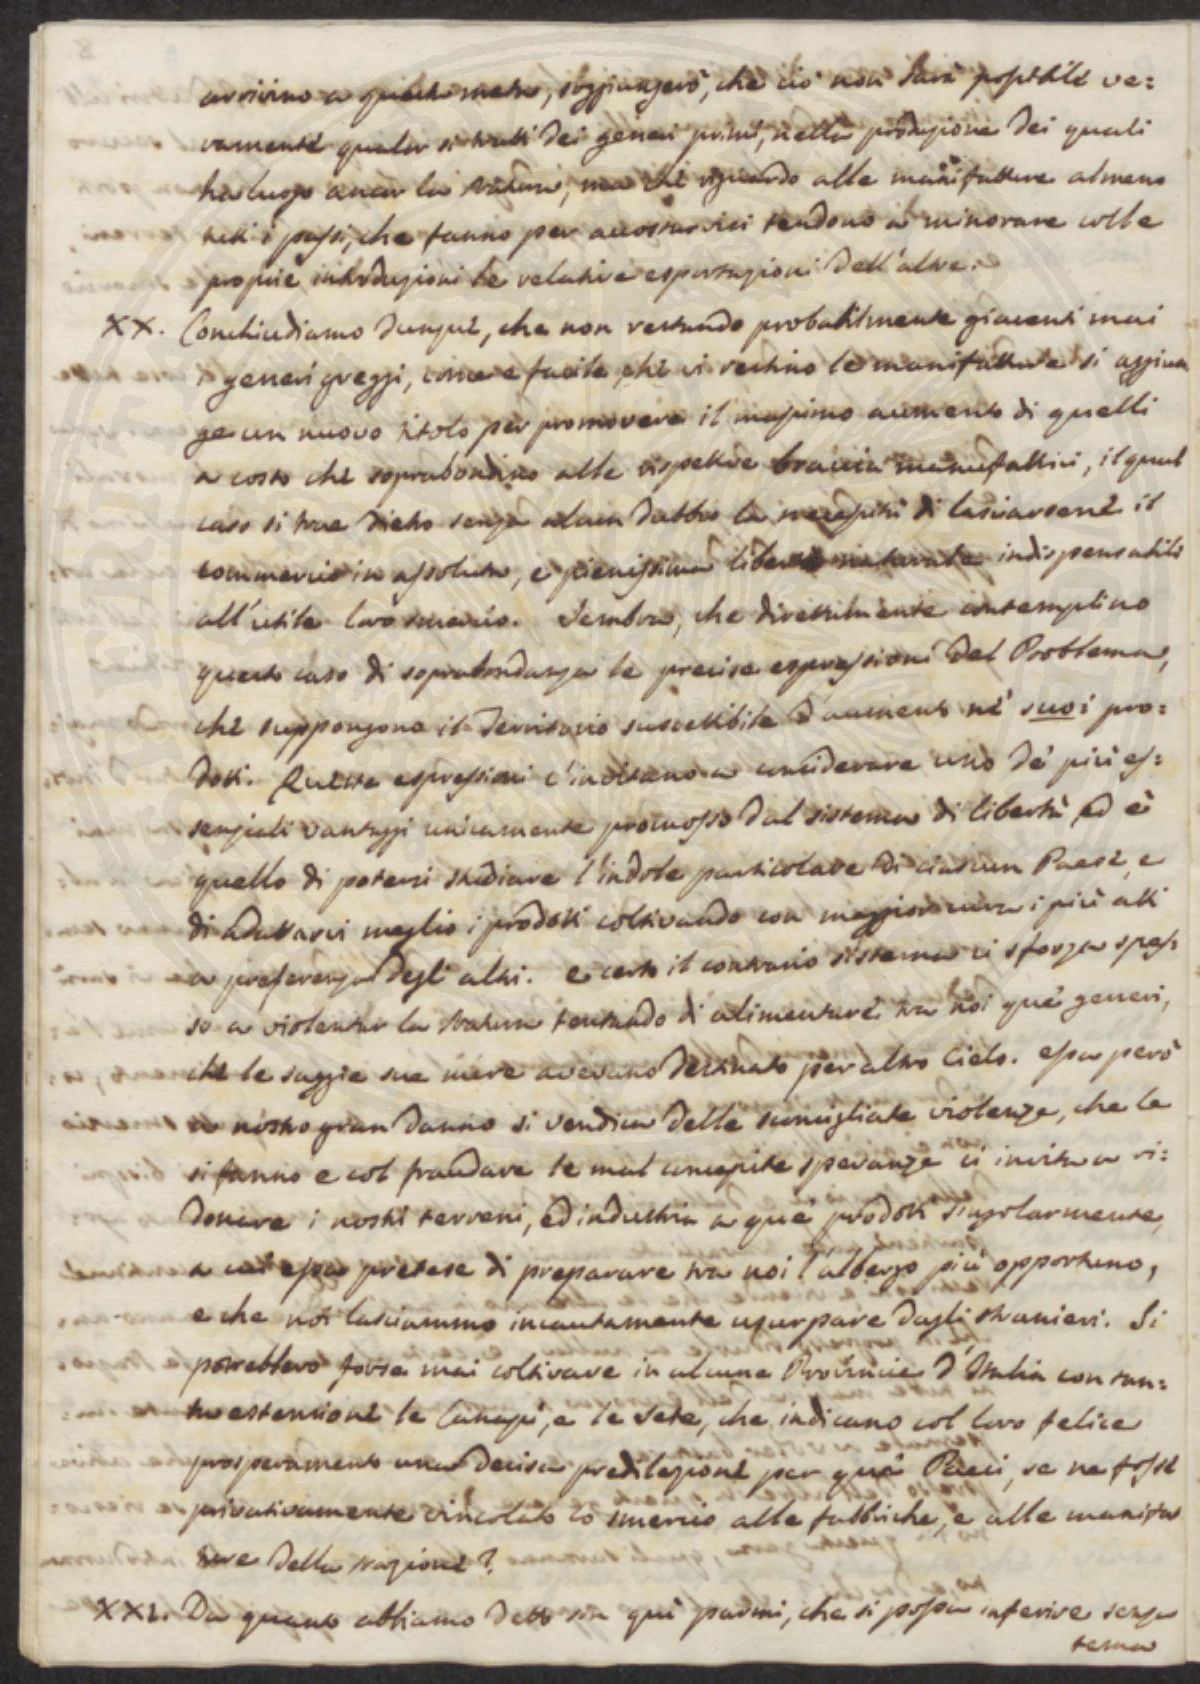 arrivino a questa meta, soggiungerò, che ciò non sarà possibile ve:
ramente qualor si tratti dei generi primi, nella produzione dei quali
ha luogo ancor la Natura, ma che riguardo alle manifatture almeno
tutti i passi, che fanno per accostarvisi tendono a minorare colle
proprie introduzioni le relative esportazioni dell'altre.
XX. Conchiudiamo dunque, che non restando probabilmente giacenti mai
i generi greggi, come è facile che vi restino le manifatture si aggiun
ge un nuovo titolo per promovere il massimo aumento di quelli
a costo che soprabondino alle rispettive braccia manufattrici, il qual
caso si trae dietro senza alcun dubbio la necessità di lasciarsene il
commercio in assoluta, e pienissima libertà naturale indispensabili
all'utile loro smercio. Sembra, che direttamente contemplino
questo caso di soprabondanza le precise espressioni del Problema,
che suppongono il Territorio suscettibile d'aumento ne' suoi pro:
dotti. Queste espressioni c'invitano a considerare uno de' più es:
senziali vantaggi unicamente promosso dal sistema di libertà, ed è
quello di potersi studiare l'indole particolare di ciascun Paese, e
di adattarvi meglio i prodotti coltivando con maggior cura i più atti
a preferenza degli altri. e certo il contrario sistema ci sforza spes:
so a violentar la Natura tentando di alimentare tra noi que' generi,
che le saggie sue mire avevano destinato per altro Cielo. essa però
a nostro gran danno si vendica delle sconsigliate violenze, che le
si fanno e col fraudare le mal concepite speranze ci invita a ri:
donare i nostri terreni, ed industria a que' prodotti singolarmente,
a cui essa pretese di preparare tra noi l'albergo più opportuno,
e che noi lasciammo incautamente usurpare dagli stranieri. Si
potrebbero forse mai coltivare in alcune Provincie d'Italia con tan:
ta estensione le Canape, e le Sete, che indicano col loro felice
prosperamento una decisa predilezione per que' Paesi, se ne fosse
privativamente vincolato lo smercio alle fabbriche, e alle manifat
ture della nazione?
XXI. Da quanto abbiamo detto sin qui parmi, che si possa inferire senza
tema